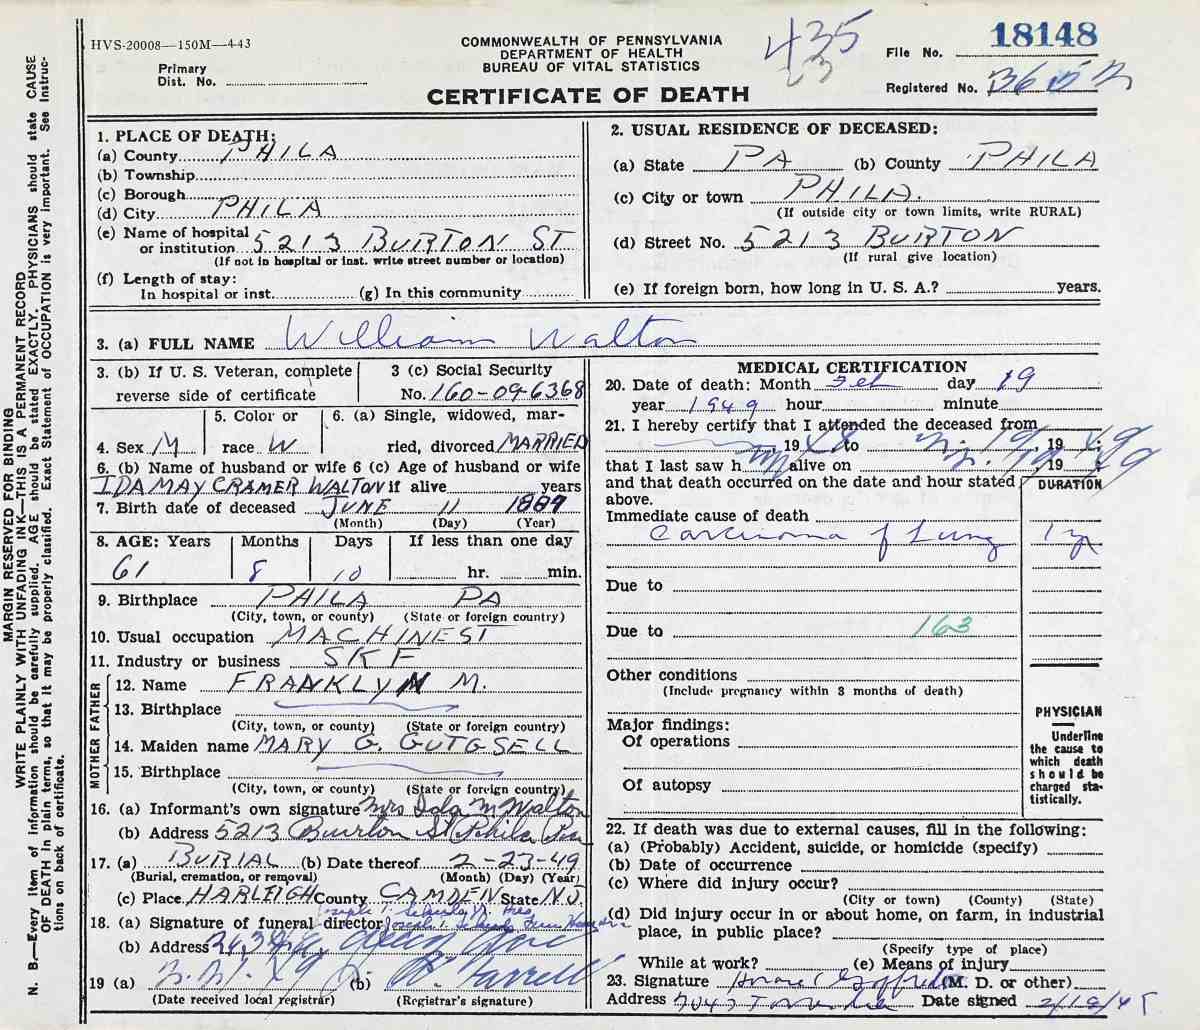 HVS-20008—150M—4-43
COMMONWEALTH OF PENNSYLVANIA
DEPARTMENT OF HEALTH
BUREAU OF VITAL STATISTICS
CERTIFICATE OF DEATH
Primary
Dist. No.
435
File No. 18148
Registered No.
1. PLACE OF DEATH:
(a) County PHILA
(b) Township
(c) Borough
(d) City PHILA
(e) Name of hospital
or institution 5213 BURTON ST
(If not in hospital or inst. write street number or location)
(f) Length of stay:
In hospital or inst. (g) In this community
2. USUAL RESIDENCE OF DECEASED:
(a) State PA (b) County PHILA
(c) City or town PHILA.
(If outside city or town limits, write RURAL)
(d) Street No. 5213 BURTON
(If rural give location)
(e) If foreign born, how long in U. S. A.? years.
3. (a) FULL NAME William Walton
3. (b) If U. S. Veteran, complete
reverse side of certificate
3 (c) Social Security
No. 160-09-6368
4. Sex M
5. Color or
race W
6. (a) Single, widowed, mar-
ried, divorced MARRIED
6. (b) Name of husband or wife 6 (c) Age of husband or wife
IDA MAY CRAMER WALTON if alive years
7. Birth date of deceased JUNE 11
(Month) (Day) (Year)
8. AGE: Years Months Days If less than one day
61 8 10 hr. min.
9. Birthplace PHILA PA
(City, town, or county) (State or foreign country)
10. Usual occupation MACHINEST
11. Industry or business SKF
FATHER
12. Name FRANKLYN M.
13. Birthplace
(City, town, or county) (State or foreign country)
MOTHER
14. Maiden name MARY G. GUTGSELL
15. Birthplace
(City, town, or county) (State or foreign country)
16. (a) Informant's own signature Mrs Ida M Walton
(b) Address 5213 Burton St Phila Pa
17. (a) BURIAL (b) Date thereof 2-23-49
(Burial, cremation, or removal) (Month) (Day) (Year)
(c) Place HARLEIGH County CAMDEN State N.J.
18. (a) Signature of funeral director
(b) Address
19 (a) (b)
(Date received local registrar) (Registrar's signature)
MEDICAL CERTIFICATION
20. Date of death: Month Feb day 19
year 1949 hour minute
21. I hereby certify that I attended the deceased from
19 48 to 19, 19 49:
that I last saw h alive on , 19 49
and that death occurred on the date and hour stated
above.
DURATION
Immediate cause of death
Carcinoma of Lung 1 yr
Due to
Due to 163
Other conditions
(Include pregnancy within 3 months of death)
Major findings:
Of operations
Of autopsy
PHYSICIAN
Underline
the cause to
which death
should be
charged sta-
tistically.
22. If death was due to external causes, fill in the following:
(a) (Probably) Accident, suicide, or homicide (specify)
(b) Date of occurrence
(c) Where did injury occur?
(City or town) (County) (State)
(d) Did injury occur in or about home, on farm, in industrial
place, in public place?
(Specify type of place)
While at work? (e) Means of injury
23. Signature (M. D. or other)
Address Date signed
MARGIN RESERVED FOR BINDING
WRITE PLAINLY WITH UNFADING INK—THIS IS A PERMANENT RECORD
N. B.—Every item of information should be carefully supplied. AGE should be stated EXACTLY. PHYSICIANS should state CAUSE
OF DEATH in plain terms, so that it may be properly classified. Exact Statement of OCCUPATION is very important. See Instruc-
tions on back of certificate.